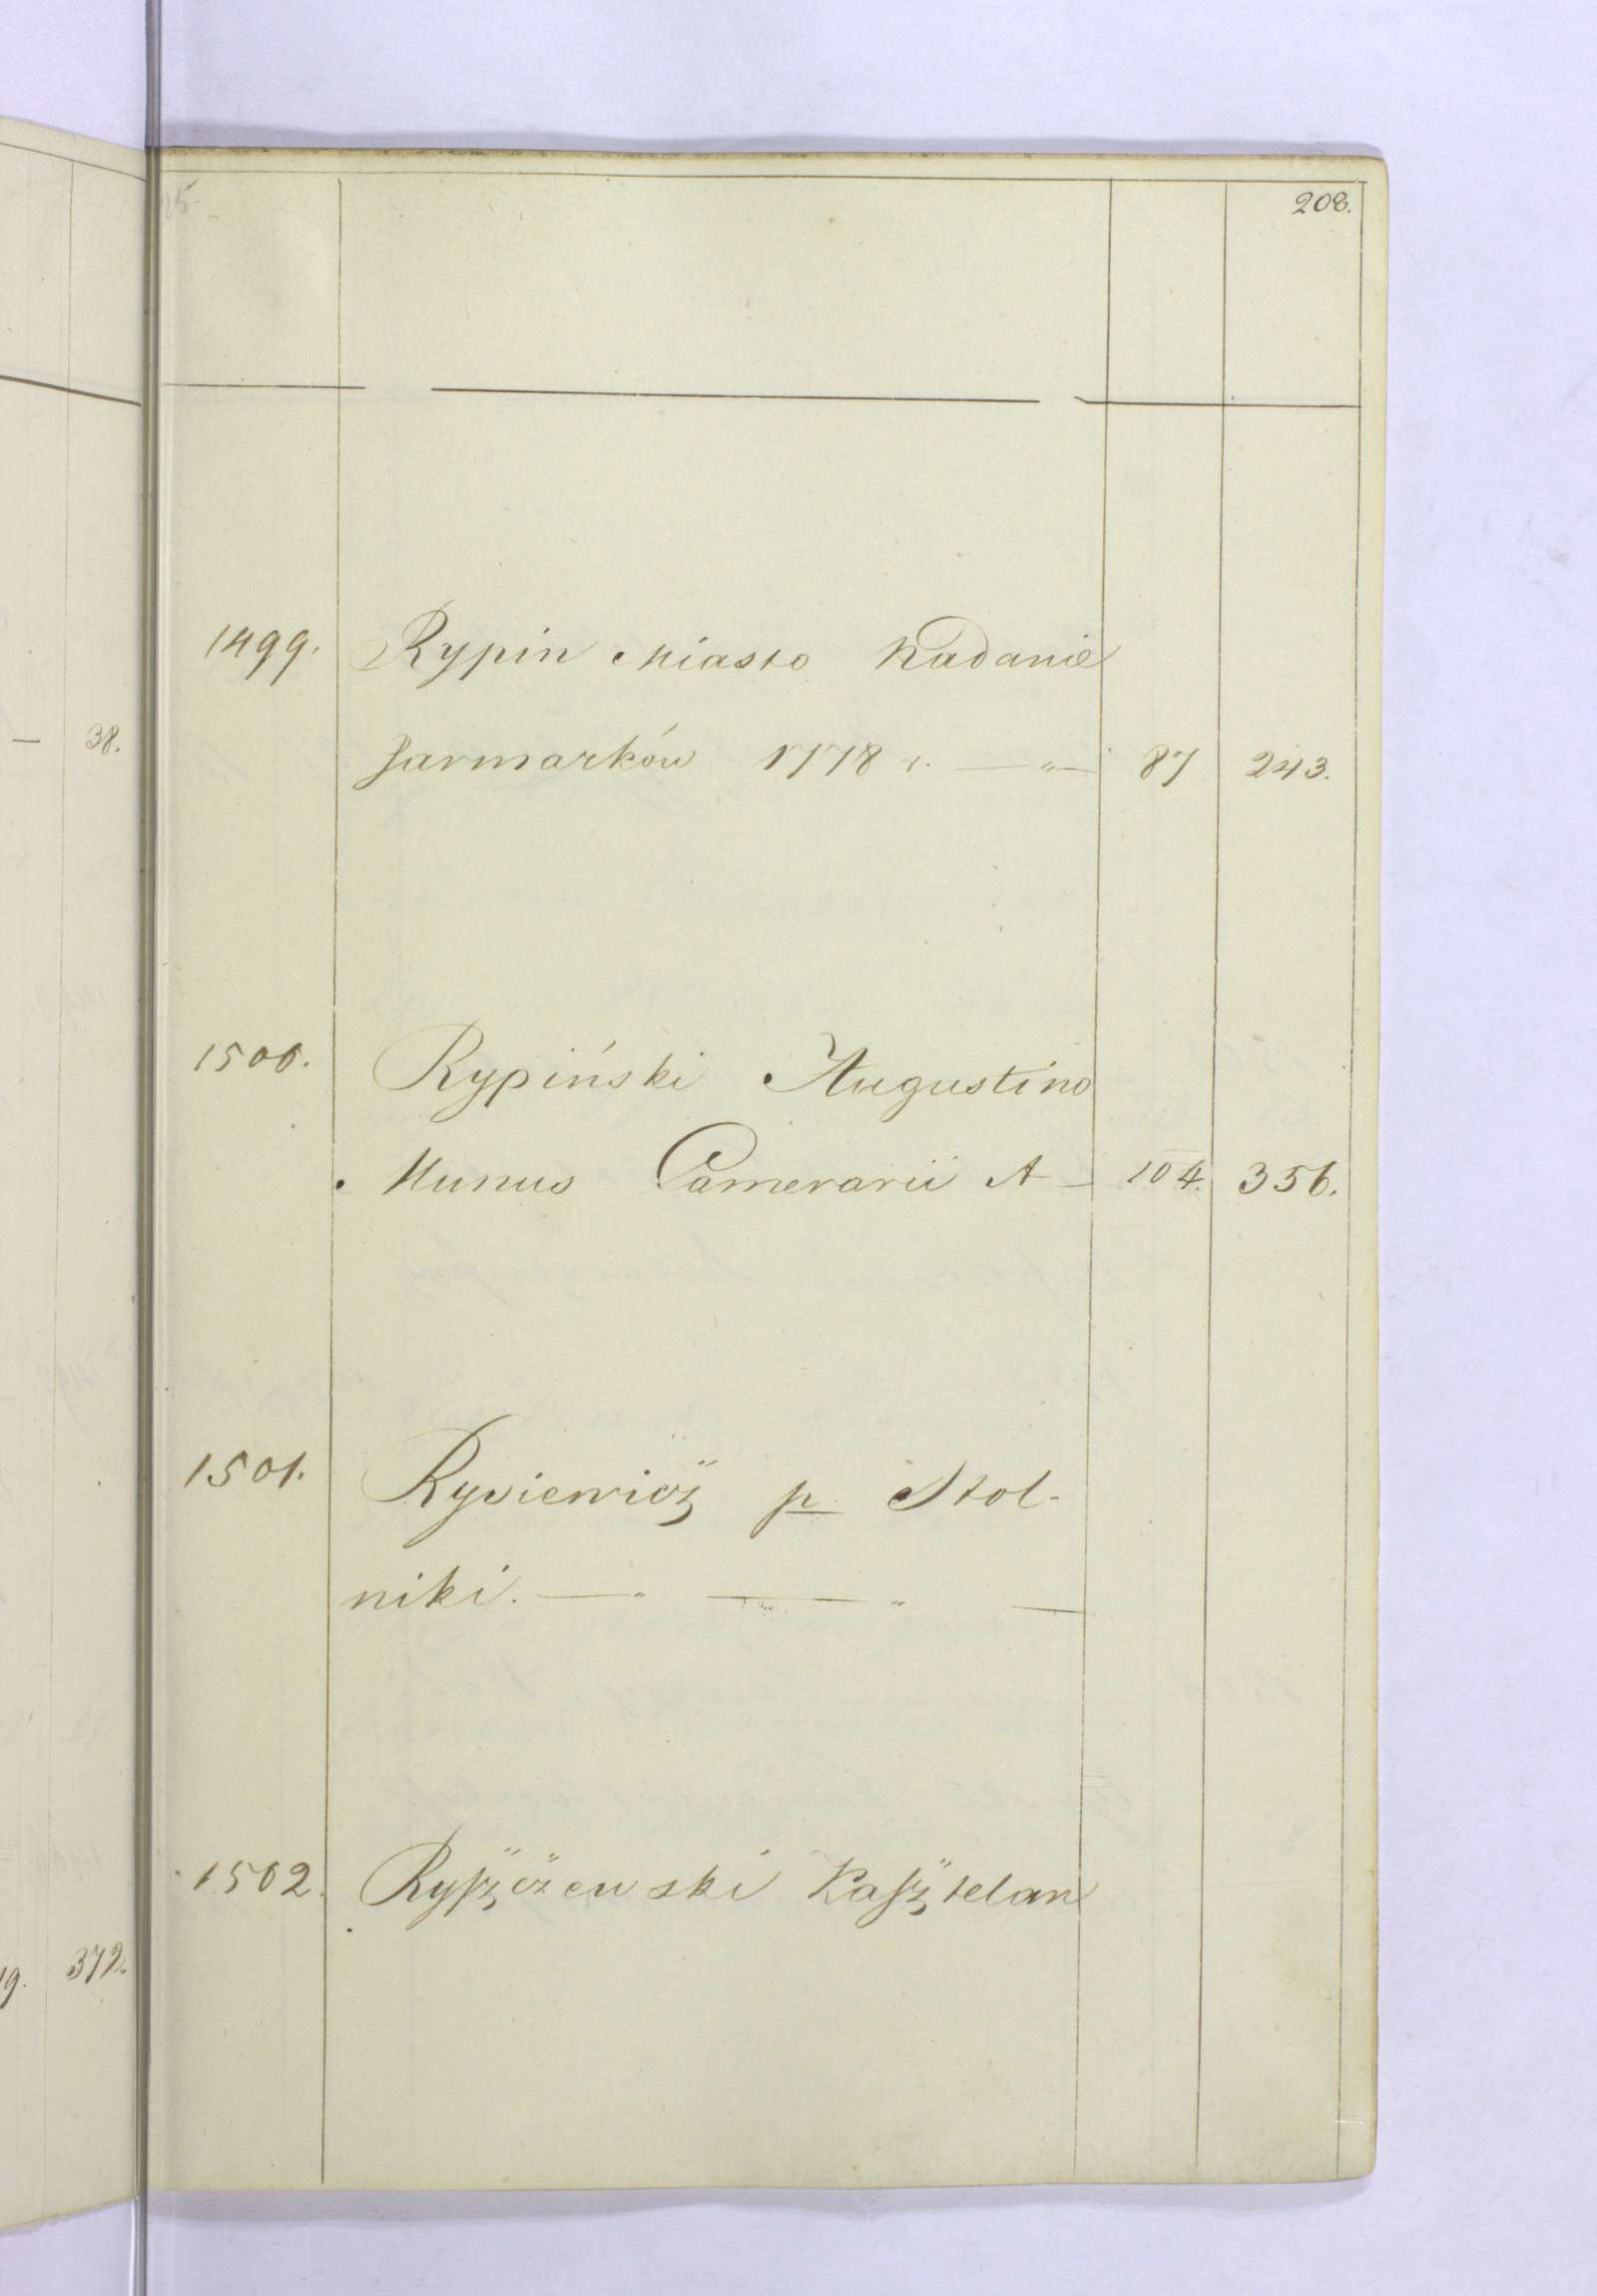 208.
1499. Rypin Miasto Nadanie
Jarmarków 1778 r. — „ — 87 243.
38.
1500. Rypiński Augustino
Munus Camerarii A — 104. 356.
1501. Rysiewicz p. Stol-
niki. — „ — — „ —
1502. Ryszczewski Kasztelan
19. 372.